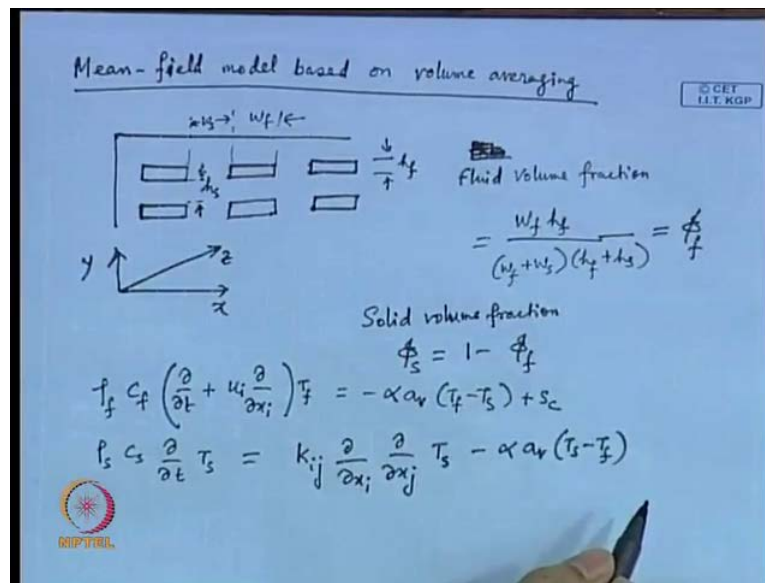 Mean-field model based on volume averaging
© CET
I.I.T. KGP
w_s w_f
h_s
h_f
Fluid volume fraction
= w_f h_f / (w_f + w_s)(h_f + h_s) = ϕ_f
y
z
x
Solid volume fraction
ϕ_s = 1 - ϕ_f
ρ_f C_f (∂/∂t + u_i ∂/∂x_i) T_f = -α a_v (T_f - T_s) + S_c
ρ_s C_s ∂/∂t T_s = K_ij ∂/∂x_i ∂/∂x_j T_s - α a_v (T_s - T_f)
NPTEL